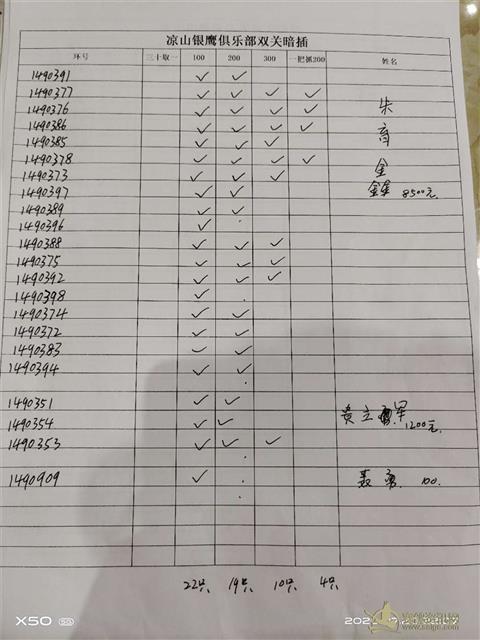 凉山银鹰俱乐部双关暗插
环号 三十取一 100 200 300 一把抓200 姓名
1490391 ✓ ✓
1490377 ✓ ✓ ✓ ✓
1490376 ✓ ✓ ✓ ✓ 朱
1490386 ✓ ✓ ✓ ✓
1490385 ✓ ✓ ✓
1490378 ✓ ✓ ✓ ✓ 金
1490373 ✓ ✓ ✓
1490397 ✓ ✓ 8500元.
1490389 ✓ ✓
1490396 ✓
1490388 ✓ ✓ ✓
1490375 ✓ ✓ ✓
1490392 ✓ ✓ ✓
1490398 ✓
1490374 ✓ ✓
1490372 ✓ ✓
1490383 ✓ ✓
1490394 ✓ ✓
1490351 ✓ ✓
1490354 ✓ ✓ 1200元.
1490353 ✓ ✓ ✓
1490909 ✓ 聂勇 100.
22只 19只 10只 4只
X50 5G